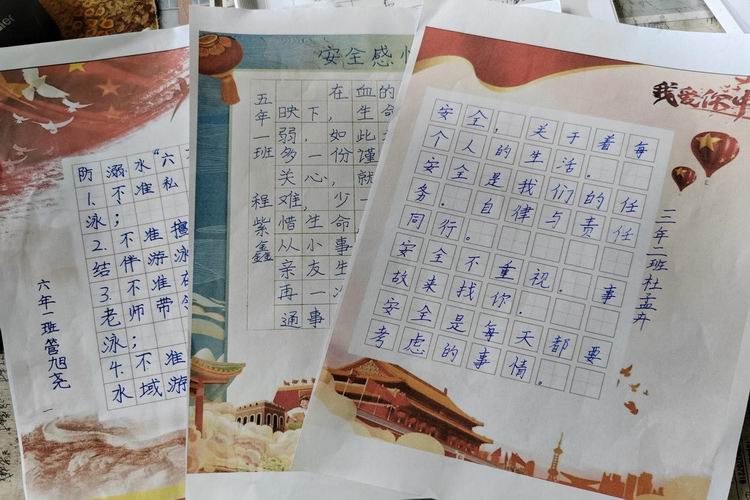 防溺水“六
1.不准私
泳；
2.不准擅
结伴游泳
3.不准
老师带
泳；
4.不准
水域游
六年一班管旭尧
安全感
在血的
映下，生命
弱，如此
多一份谨
关心，就
难，少一
惜生命，
从小事
亲友生
再一
通事
五年一班 程紫鑫
我爱你中
安全，关于着每
个人的生活。
安全是我们的任
务。自律与责任
同行。
安全不重视。事
故来找你。
安全是每天都要
考虑的事情。
二年二班杜孟卉